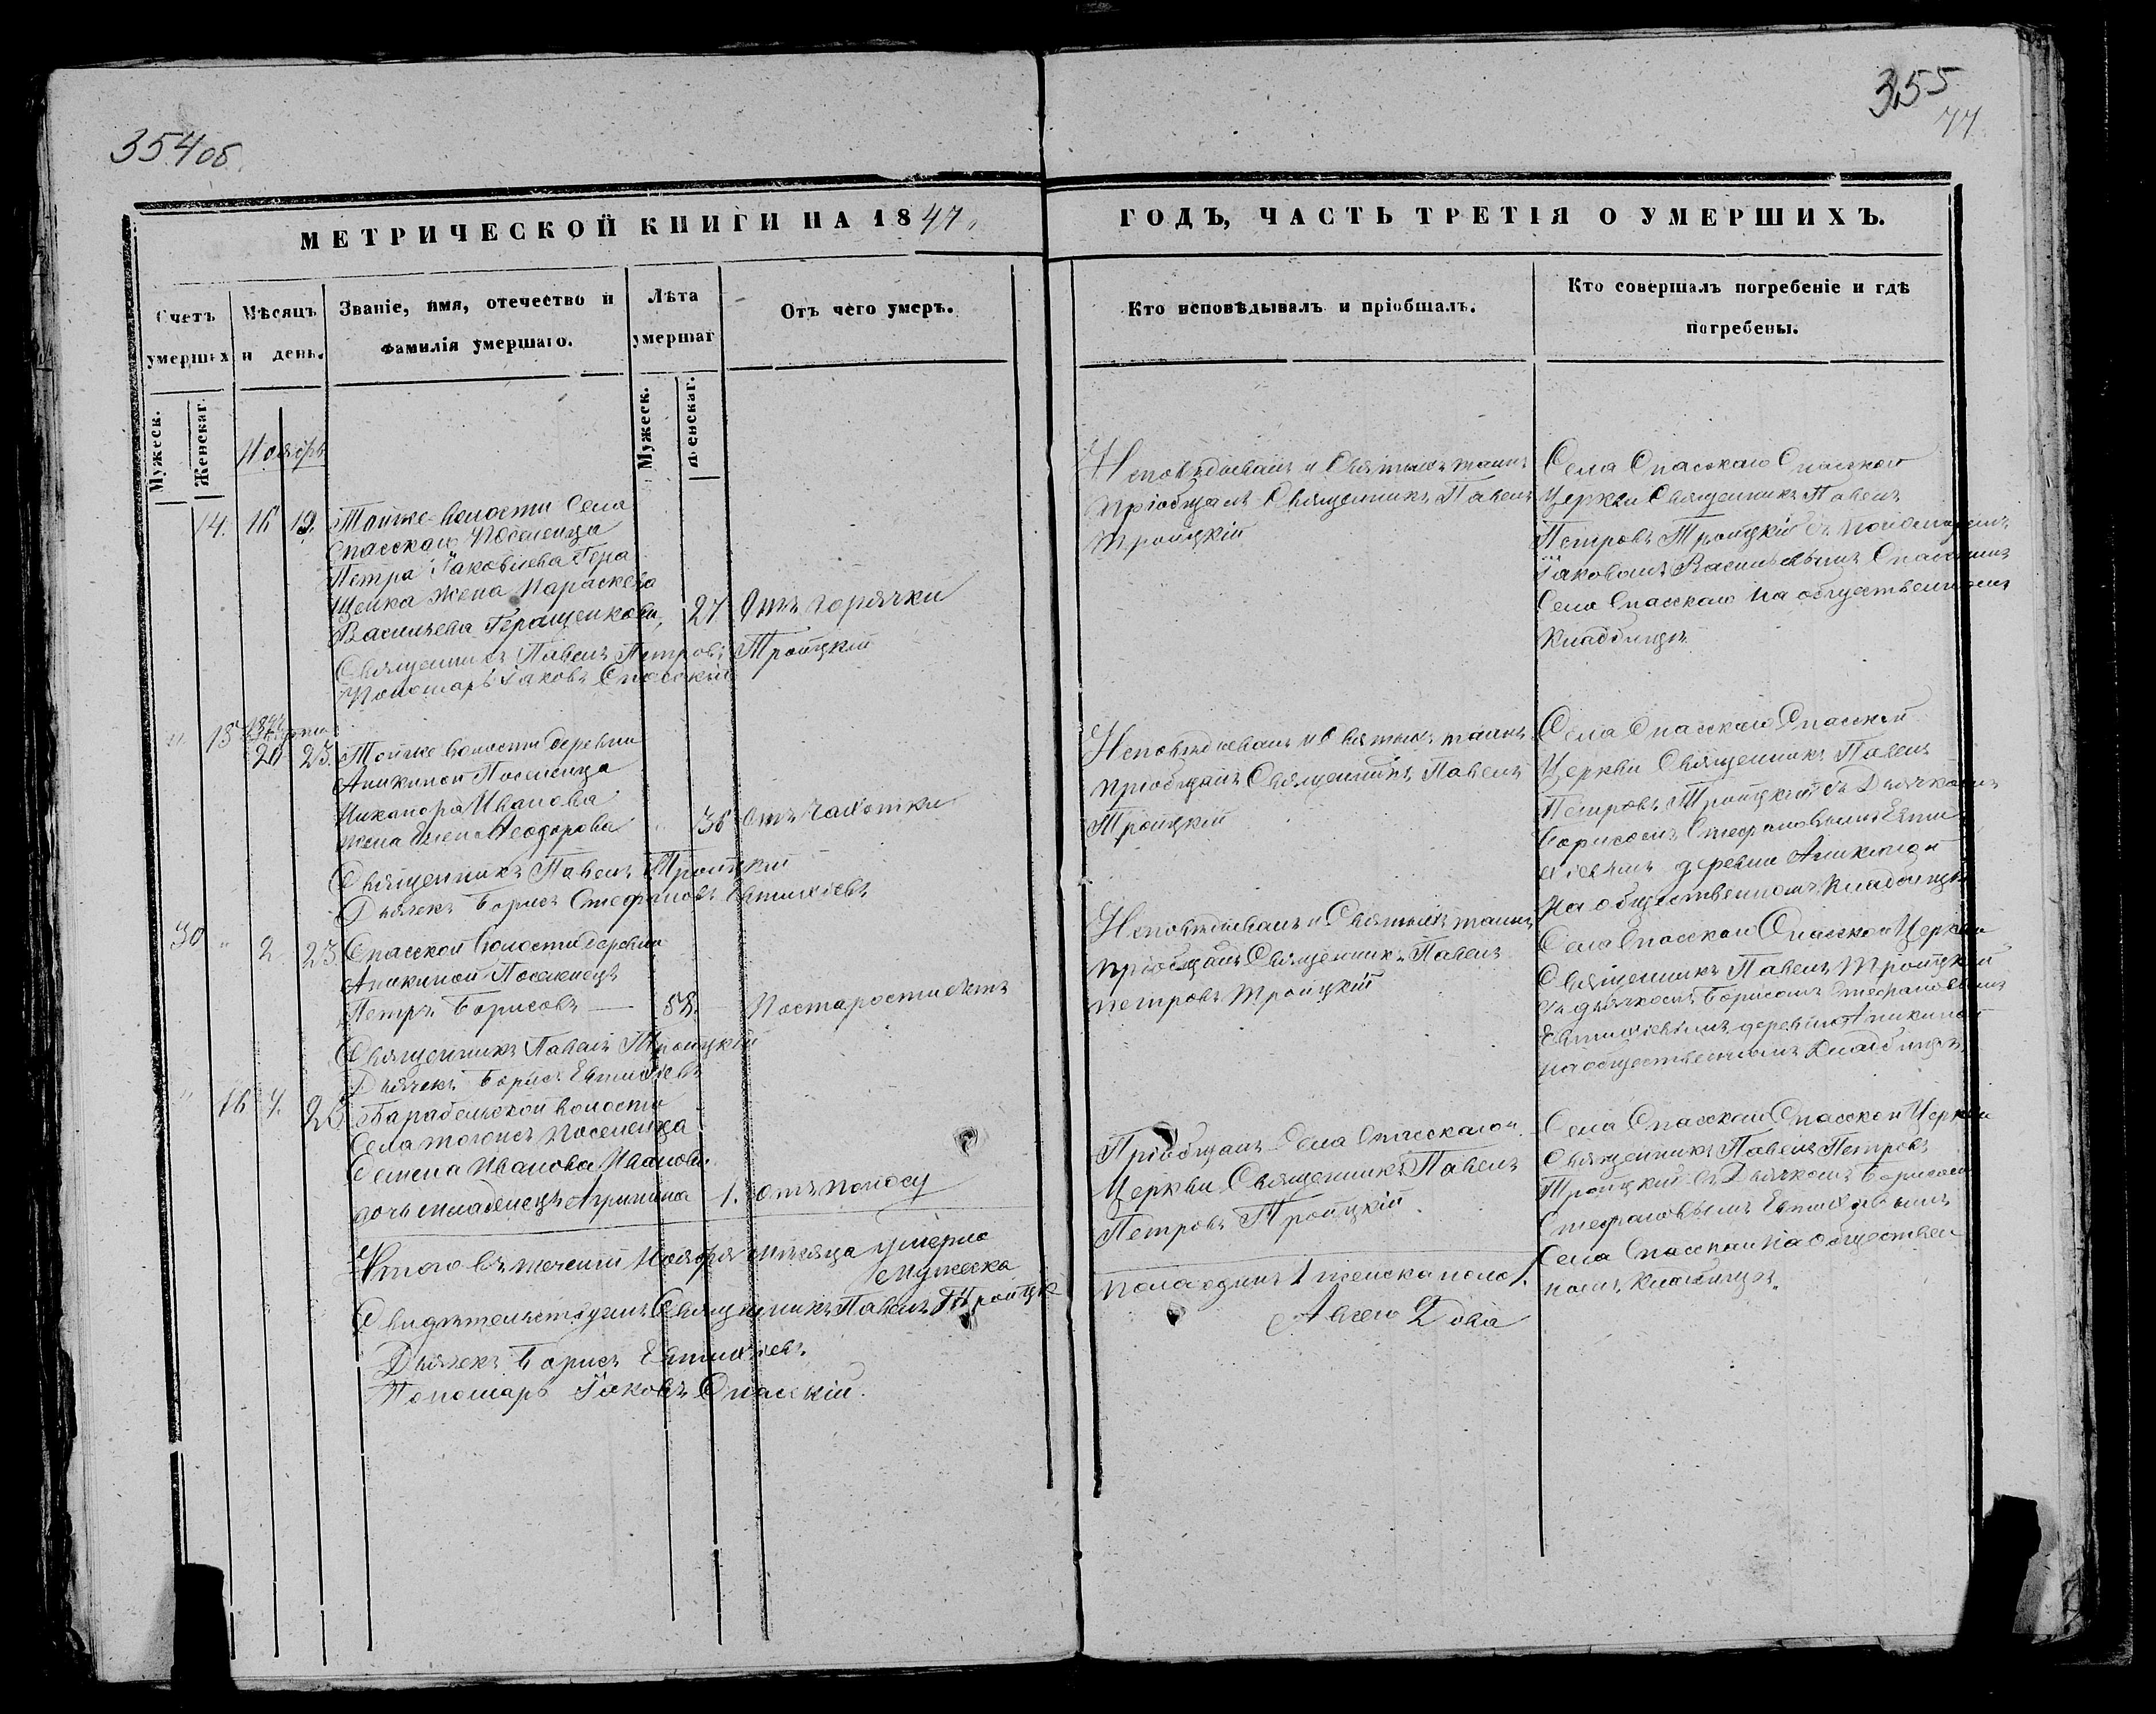 354 об.
355
77
МЕТРИЧЕСКОЙ КНИГИ НА 1847.
ГОДЪ, ЧАСТЬ ТРЕТІЯ О УМЕРШИХЪ.
Счетъ умершихъ
Мѣсяцъ и день.
Званіе, имя, отечество и фамилія умершаго.
Лѣта умершаг
Отъ чего умеръ.
Кто исповѣдывалъ и пріобщалъ.
Кто совершалъ погребеніе и гдѣ погребены.
Мужеск.
Женскаг.
Мужеск.
Женскаг.
Ноябрь
14. 16 19. Тойже волости Села
Спасскаго Поселенца
Петра Іаковлева Гера
щенка жена Параскева
Васильева Геращенкова, 27. Отъ горячки
Священникъ Павелъ Петровъ Троицкій
Пономарь Іаковъ Спасскій
Исповѣдывалъ и Святыхъ таинъ
пріобщалъ Священникъ Павелъ
Троицкій
Села Спасскаго Спасской
Церкви Священникъ Павелъ
Петровъ Троицкій съ пономаремъ
Іаковомъ Васильевымъ Спасскимъ
Села Спасскаго на общественномъ
Кладбищѣ
15
20 23. Тойже волости деревни
Аникиной Поселенца
Никанора Иванова
жена Елена Ѳеодорова 36 Отъ чахотки
Священникъ Павелъ Троицкій
Дьячекъ Борисъ Стефановъ Евтихіевъ
Исповѣдывалъ и Святыхъ таинъ
пріобщалъ Священникъ Павелъ
Троицкій
Села Спасскаго Спасской
Церкви Священникъ Павелъ
Петровъ Троицкій съ Дьячкомъ
Борисомъ Стефановымъ Евти
хіевымъ деревни Аникиной
на общественномъ кладбищѣ
30 " 2. 23. Спасской волости деревни
Аникиной Поселенецъ
Петръ Борисовъ — 58. По старости лѣтъ
Священникъ Павелъ Троицкій
Дьячекъ Борисъ Евтихіевъ
Исповѣдывалъ и Святыхъ таинъ
пріобщалъ Священникъ Павелъ
Петровъ Троицкій
Села Спасскаго Спасской Церкви
Священникъ Павелъ Троицкій
съ дьячкомъ Борисомъ Стефановымъ
Евтихіевымъ деревни Аникиной
на общественномъ Кладбищѣ.
" 16 4. Парабельской волости
Села тогожъ Поселенца
Семена Иванова Иванова
дочь младенецъ Агрипина 1. Отъ поносу
Пріобщалъ Села Спасскаго
Церкви Священникъ Павелъ
Петровъ Троицкій
Села Спасскаго Спасской Церкви
Священникъ Павелъ Петровъ
Троицкій съ Дьячкомъ Борисомъ
Стефановымъ Евтихіевымъ
Села Спасскаго на обществен
номъ кладбищѣ.
Итого въ теченіи Ноября мѣсяца умерло
Мужеска
пола одинъ 1 женска пола 1.
Свидѣтельствуемъ Священникъ Павелъ Троицкій
А всего Двѣ
Дьячекъ Борисъ Евтихіевъ
Пономарь Іаковъ Спасскій.